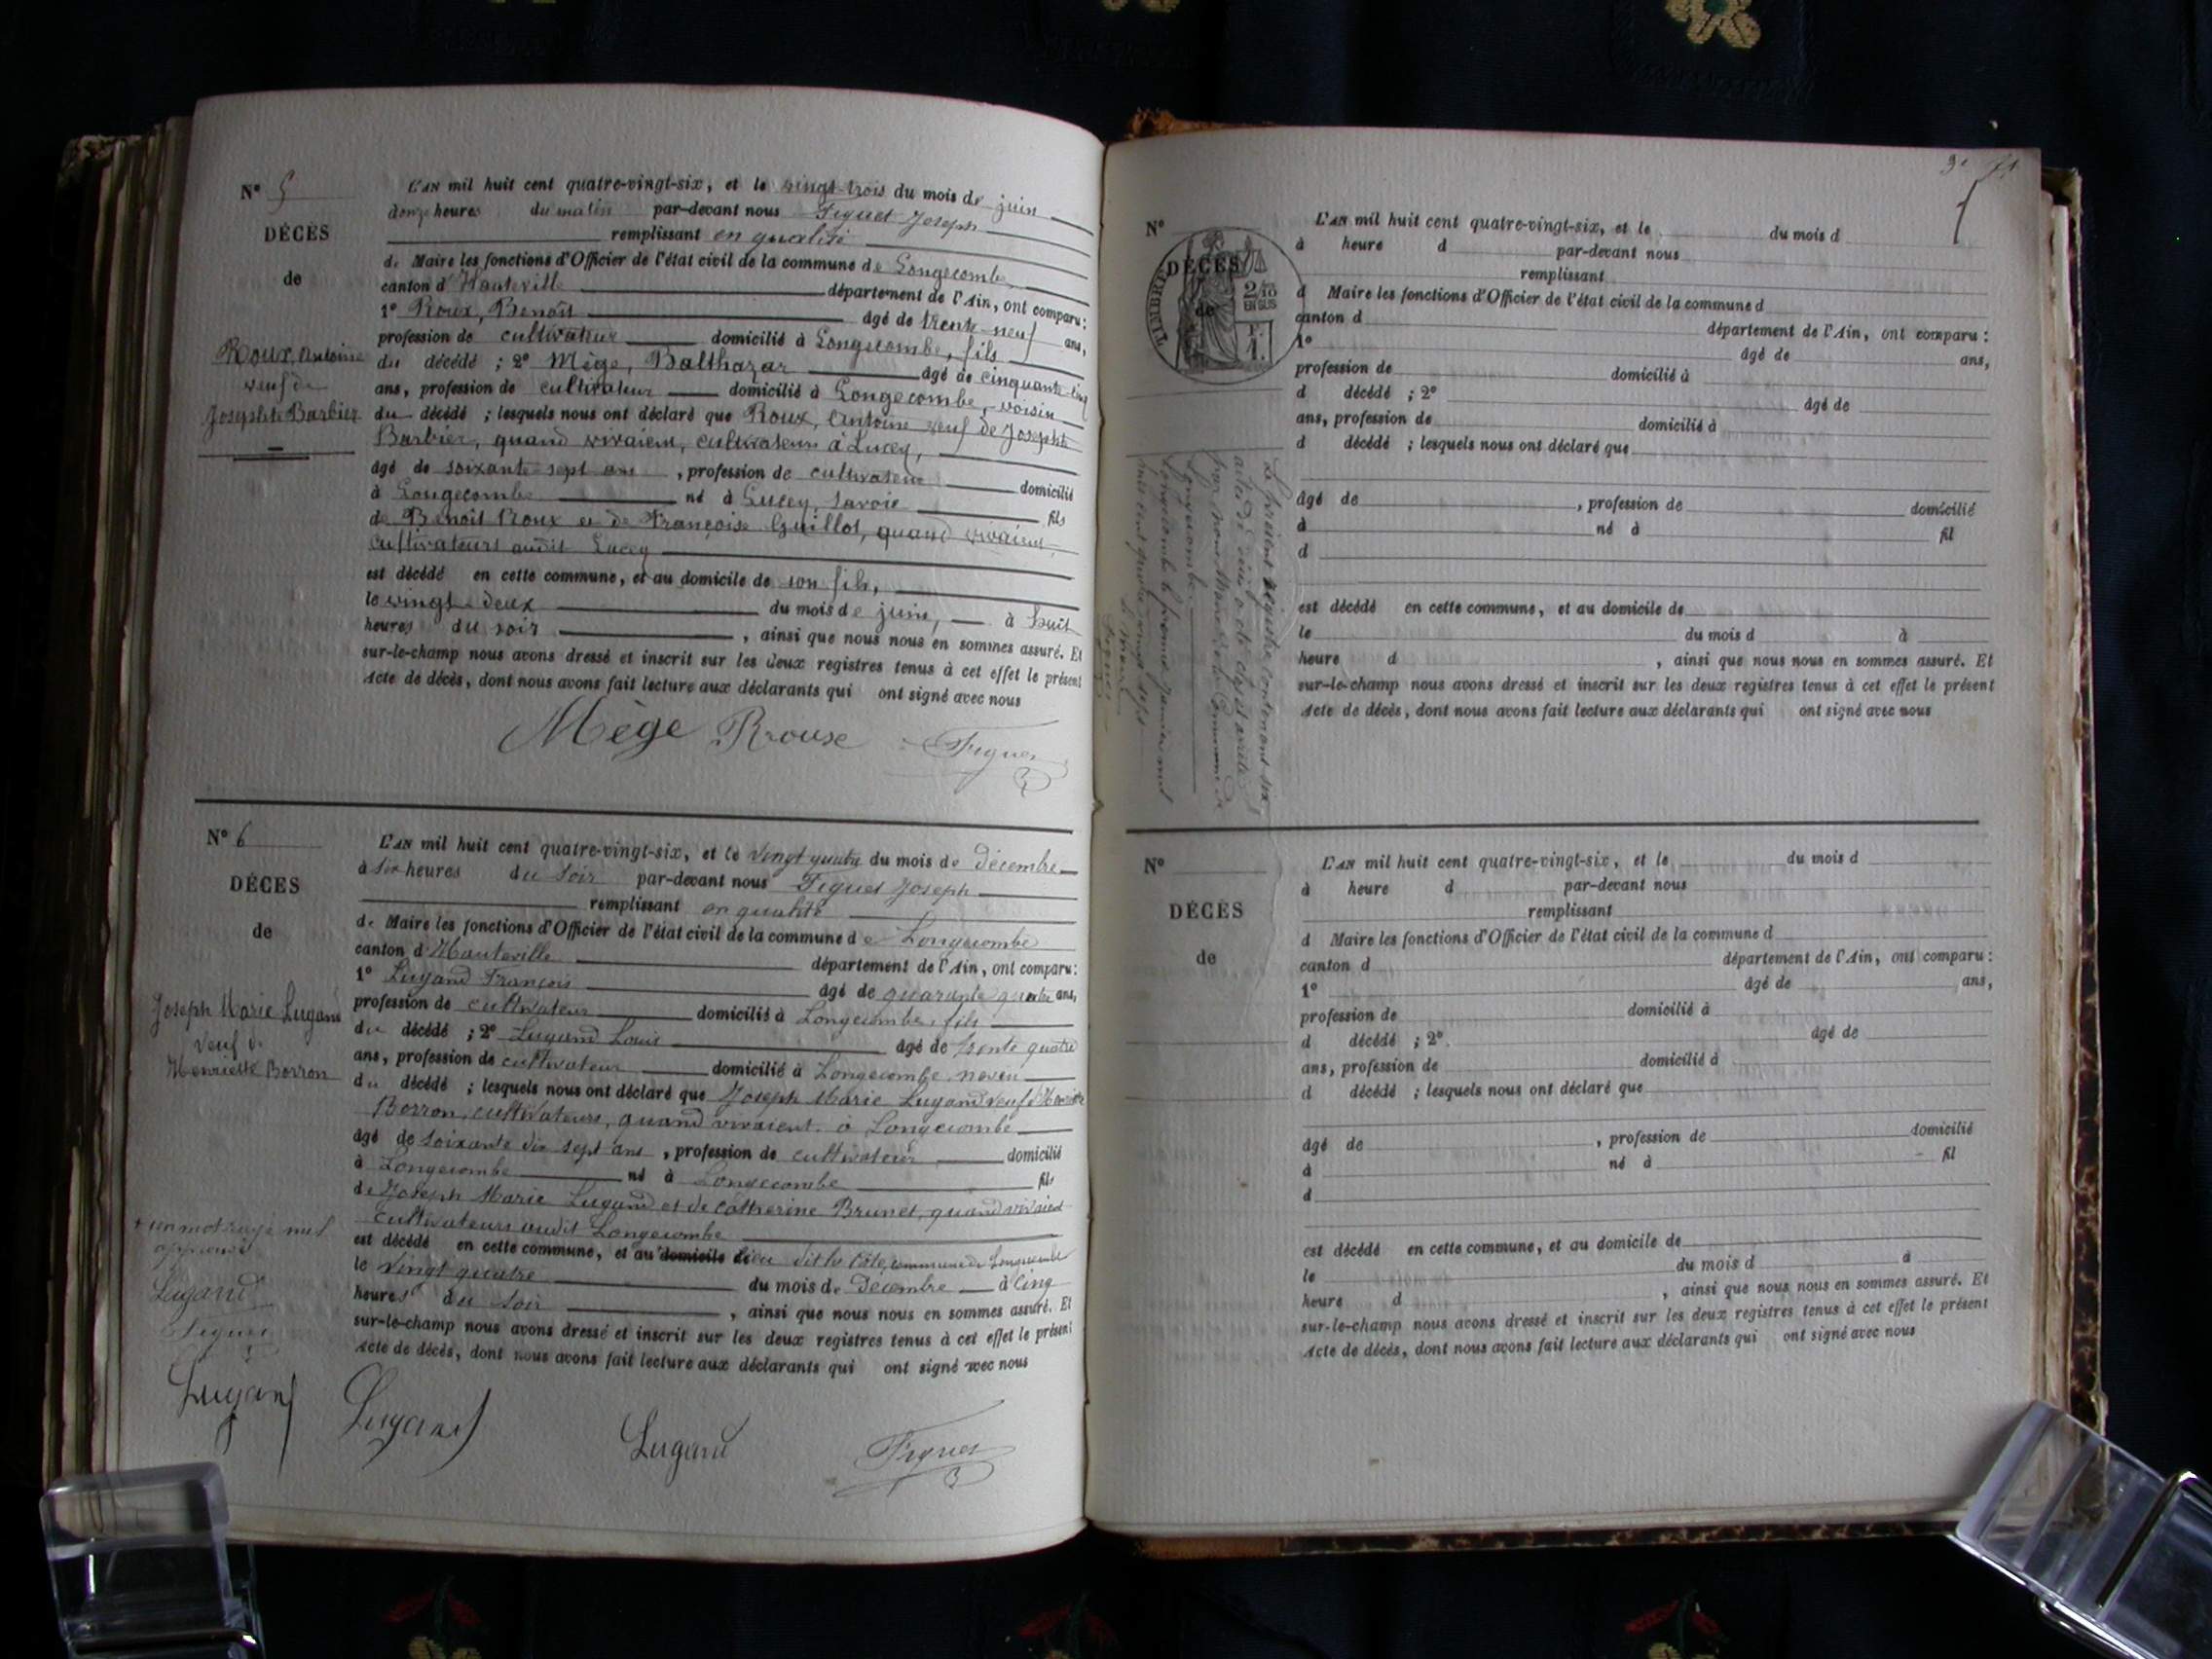 N° 5
DÉCÈS
de
Roux, Antoine
veuf de
Josephte Barbier
L'AN mil huit cent quatre-vingt-six, et le vingt-trois du mois de juin
heures du matin par-devant nous Figuet Joseph
remplissant en qualité
de Maire les fonctions d'Officier de l'état civil de la commune de Longecombe
canton d'Hauteville département de l'Ain, ont comparu:
1° Roux, Benoît âgé de trente-neuf ans,
profession de cultivateur domicilié à Longecombe, fils
du décédé ; 2° Mège, Balthazar âgé de cinquante-cinq
ans, profession de cultivateur domicilié à Longecombe, voisin
du décédé ; lesquels nous ont déclaré que Roux, Antoine veuf de Josephte
Barbier, quand vivaient, cultivateurs à Lucey,
âgé de soixante-sept ans , profession de cultivateur domicilié
à Longecombe né à Lucey, Savoie fils
de Benoît Roux et de Françoise Guillot, quand vivaient,
cultivateurs audit Lucey
est décédé en cette commune, et au domicile de son fils,
le vingt-deux du mois de juin, à huit
heures du soir , ainsi que nous nous en sommes assuré. Et
sur-le-champ nous avons dressé et inscrit sur les deux registres tenus à cet effet le présent
Acte de décès, dont nous avons fait lecture aux déclarants qui ont signé avec nous
Mège Rouse Figuet
N° 6
DÉCES
de
Joseph Marie Lugand
veuf de
Henriette Borron
L'AN mil huit cent quatre-vingt-six, et le vingt quatre du mois de décembre
à six heures du soir par-devant nous Figuet Joseph
remplissant en qualité
de Maire les fonctions d'Officier de l'état civil de la commune de Longecombe
canton d'Hauteville département de l'Ain, ont comparu:
1° Lugand François âgé de quarante quatre ans,
profession de cultivateur domicilié à Longecombe, fils
du décédé ; 2° Lugand Louis âgé de trente quatre
ans, profession de cultivateur domicilié à Longecombe, neveu
du décédé ; lesquels nous ont déclaré que Joseph Marie Lugand veuf d'Henriette
Borron, cultivateurs, quand vivaient, à Longecombe
âgé de soixante dix sept ans , profession de cultivateur domicilié
à Longecombe né à Longecombe fils
de Joseph Marie Lugand et de Catherine Brunet, quand vivaient
cultivateurs audit Longecombe
est décédé en cette commune, et au domicile lieu dit la Côte, commune de Longecombe
le vingt quatre du mois de décembre à cinq
heures du soir , ainsi que nous nous en sommes assuré. Et
sur-le-champ nous avons dressé et inscrit sur les deux registres tenus à cet effet le présent
Acte de décès, dont nous avons fait lecture aux déclarants qui ont signé avec nous
+ un mot rayé nul
approuvé
Lugand
Figuet
Lugand Lugand Lugand Figuet
N°
DÉCÈS
de
TIMBRE
2/10
EN SUS
L'AN mil huit cent quatre-vingt-six, et le du mois d
à heure d par-devant nous
remplissant
d Maire les fonctions d'Officier de l'état civil de la commune d
canton d département de l'Ain, ont comparu :
1° âgé de ans,
profession de domicilié à
d décédé ; 2° âgé de
ans, profession de domicilié à
d décédé ; lesquels nous ont déclaré que
âgé de , profession de domicilié
à né à fil
d
est décédé en cette commune, et au domicile de
le du mois d à
heure d , ainsi que nous nous en sommes assuré. Et
sur-le-champ nous avons dressé et inscrit sur les deux registres tenus à cet effet le présent
Acte de décès, dont nous avons fait lecture aux déclarants qui ont signé avec nous
Le présent registre contenant six
actes de décès a été clos et arrêté
par nous Maire de la Commune de
Longecombe
Longecombe le premier janvier mil
huit cent quatre vingt sept
Le Maire
Figuet
N°
DÉCÈS
de
L'AN mil huit cent quatre-vingt-six, et le du mois d
à heure d par-devant nous
remplissant
d Maire les fonctions d'Officier de l'état civil de la commune d
canton d département de l'Ain, ont comparu :
1° âgé de ans,
profession de domicilié à
d décédé ; 2° âgé de
ans, profession de domicilié à
d décédé ; lesquels nous ont déclaré que
âgé de , profession de domicilié
à né à fil
d
est décédé en cette commune, et au domicile de
le du mois d à
heure d , ainsi que nous nous en sommes assuré. Et
sur-le-champ nous avons dressé et inscrit sur les deux registres tenus à cet effet le présent
Acte de décès, dont nous avons fait lecture aux déclarants qui ont signé avec nous